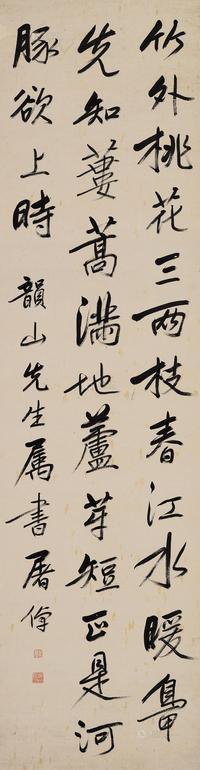 竹外桃花三兩枝春江水暖鳧
先知蔞蒿滿地蘆芽短正是河
豚欲上時 韻山先生屬書屠倬